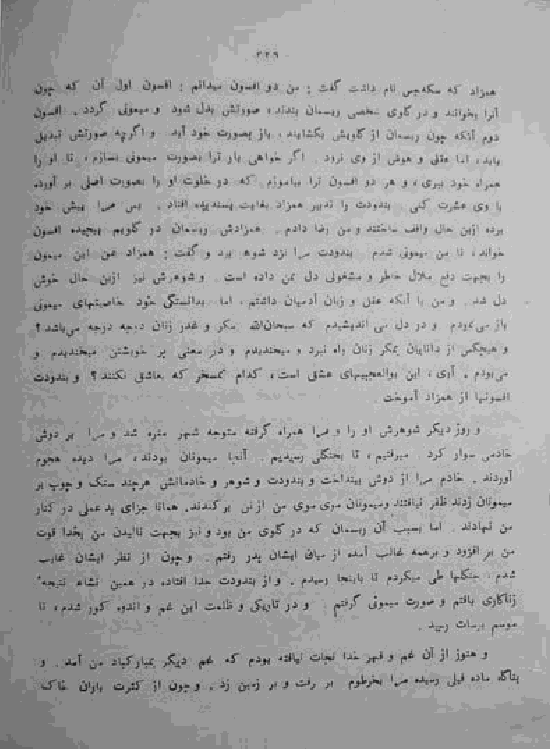 ۳۳۹
همزاد که سکهجس نام داشت گفت : من دو افسون میدانم : افسون اول آن که چون
آنرا بخوانند و در گلوی شخصی ریسمان بندند، صورتش بدل شود و میمونی گردد . افسون
دوم آنکه چون ریسمان از گلویش بکشایند، باز بصورت خود آید و اگرچه صورتش تبدیل
یابد، اما عقل و هوش از وی نرود . اگر خواهی یار ترا بصورت میمونی بسازم، تا او را
همراه خود ببری، و هر دو افسون ترا بیاموزم که در خلوت او را بصورت اصلی بر آورده
با وی عشرت کنی . بندودت را تدبیر همزاد بغایت پسندیده افتاد . پس مرا پیش خود
برده ازین حال واقف ساختند و من رضا دادم . همزادش ریسمان در گلویم پیچیده افسون
خواند، تا من میمونی شدم . بندودت مرا نزد شوهر برد و گفت : همزاد من این میمون
را بجهت دفع ملال خطر و مشغولی دل بمن داده است . و شوهرش نیز ازین حال خوش
دل شد . و من با آنکه عقل و زبان آدمیان داشتم، اما بدانستگی خود خاصیتهای میمونی
باز می‌نمودم و در دل می اندیشیدم که سبحان‌الله مکر و غدر زنان درجه درجه می‌باشد؟
و هیچکس از دانایان بمکر زنان راه نبرد و میخندیدم و در معنی بر خویشتن میخندیدم و
می‌بودم . آری، این بوالعجبیهای عشق است، کدام تمسخر که بعاشق نکنند؟ و بندودت
افسونها از همزاد آموخت .
و روز دیگر شوهرش او را و مرا همراه گرفته متوجه شهر شد و مرا بر دوش
خادمی سوار کرد . میرفتیم، تا بجنگلی رسیدیم . آنجا میمونان بودند، مرا دیده هجوم
آوردند . خادم مرا از دوش بینداخت و بندودت و شوهر و خادمانش هرچند سنگ و چوب بر
میمونان زدند ظفر نیافتند و میمونان موی موی من از تن بر کندند. همانا جزای بد عملی در کنار
من نهادند . اما بسبب آن ریسمان که در گلوی من بود و نیز بجهت نالیدن من بخدا قوت
من بر افزود و برهمه غالب آمده از میان ایشان بدر رفتم . و چون از نظر ایشان غایب
شدم، جنگلها طی میکردم تا باینجا رسیدم . و از بندودت جدا افتاده، در همین نشاء نتیجهٔ
زناکاری یافتم و صورت میمونی گرفتم : و در تاریکی و ظلمت این غم و اندوه کور شدم، تا
موسم برسات رسید .
و هنوز از آن غم و قهر خدا نجات نیافته بودم که غم دیگر بمبارکباد من آمد . و
بناگاه ماده فیلی رسیده مرا بخرطوم بر رفت و بر زمین زد . و چون از کثرت باران خاک